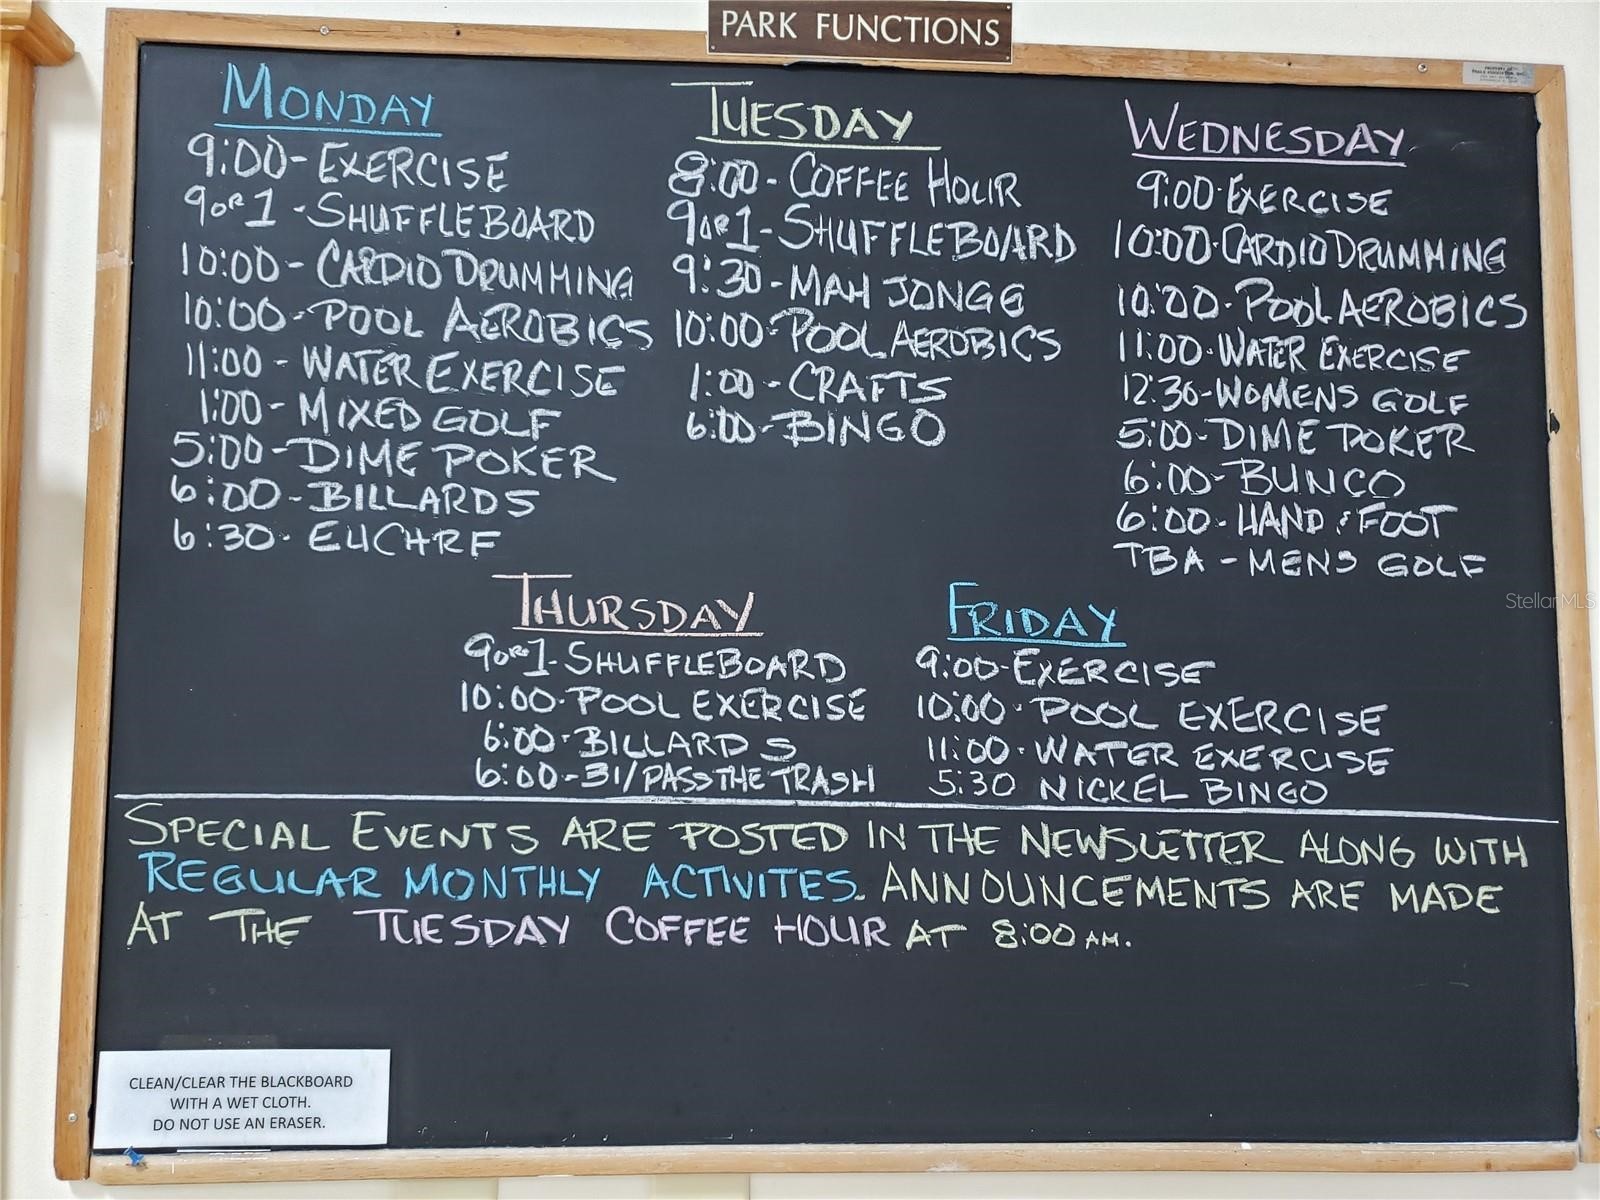 PARK FUNCTIONS
MONDAY
9:00 - EXERCISE
9 OR 1 - SHUFFLEBOARD
10:00 - CARDIO DRUMMING
10:00 - POOL AEROBICS
11:00 - WATER EXERCISE
1:00 - MIXED GOLF
5:00 - DIME POKER
6:00 - BILLARDS
6:30 - EUCHRE
TUESDAY
8:00 - COFFEE HOUR
9 OR 1 - SHUFFLEBOARD
9:30 - MAH JONGG
10:00 - POOL AEROBICS
1:00 - CRAFTS
6:00 - BINGO
WEDNESDAY
9:00 - EXERCISE
10:00 - CARDIO DRUMMING
10:00 - POOL AEROBICS
11:00 - WATER EXERCISE
12:30 - WOMENS GOLF
5:00 - DIME POKER
6:00 - BUNCO
6:00 - HAND & FOOT
TBA - MENS GOLF
THURSDAY
9 OR 1 - SHUFFLEBOARD
10:00 - POOL EXERCISE
6:00 - BILLARDS
6:00 - 31/PASS THE TRASH
FRIDAY
9:00 - EXERCISE
10:00 - POOL EXERCISE
11:00 - WATER EXERCISE
5:30 NICKEL BINGO
SPECIAL EVENTS ARE POSTED IN THE NEWSLETTER ALONG WITH
REGULAR MONTHLY ACTIVITES. ANNOUNCEMENTS ARE MADE
AT THE TUESDAY COFFEE HOUR AT 8:00 AM.
CLEAN/CLEAR THE BLACKBOARD
WITH A WET CLOTH.
DO NOT USE AN ERASER.
StellarMLS